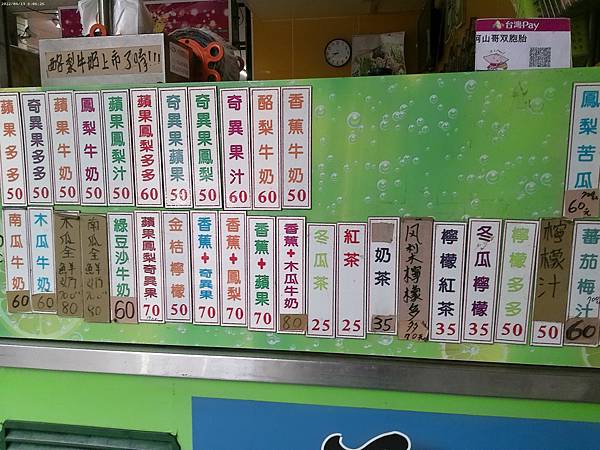 2022/06/15 8:06:26
酪梨牛奶上市了唷!!!
台灣Pay
阿山哥双胞胎
蘋果多多 50
奇異果多多 50
蘋果牛奶 50
鳳梨牛奶 50
蘋果鳳梨汁 50
蘋果鳳梨多多 60
奇異果蘋果 50
奇異果鳳梨 50
奇異果汁 60
酪梨牛奶 60
香蕉牛奶 50
鳳梨苦瓜 60元
南瓜牛奶 60
木瓜牛奶 60
木瓜全鮮奶 700cc 80
南瓜全鮮奶 700cc 80
綠豆沙牛奶 60
蘋果鳳梨奇異果 70
金桔檸檬 50
香蕉+奇異果 70
香蕉+鳳梨 70
香蕉+蘋果 70
香蕉+木瓜牛奶 80
冬瓜茶 25
紅茶 25
奶茶 35
凤梨檸檬多多 70元
檸檬紅茶 35
冬瓜檸檬 35
檸檬多多 50
檸檬汁 50
蕃茄梅汁 60